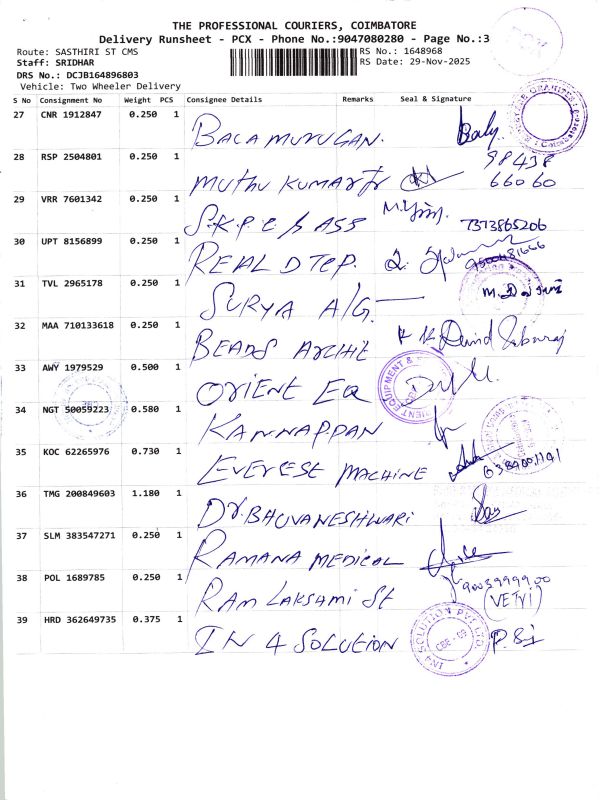 THE PROFESSIONAL COURIERS, COIMBATORE
Delivery Runsheet - PCX - Phone No.:9047080280 - Page No.:3
Route: SASTHIRI ST CMS RS No.: 1648968
Staff: SRIDHAR RS Date: 29-Nov-2025
DRS No.: DCJB164896803
Vehicle: Two Wheeler Delivery
PCX
S No Consignment No Weight PCS Consignee Details Remarks Seal & Signature
27 CNR 1912847 0.250 1 BALAMURUGAN.
28 RSP 2504801 0.250 1 MUTHU KUMAR 98438
66060
29 VRR 7601342 0.250 1 S.K.P.C & ASS 7373865206
30 UPT 8156899 0.250 1 REAL D TEP.
31 TVL 2965178 0.250 1 SURYA A/G.
32 MAA 710133618 0.250 1 BEADS ARCHIE
33 AWY 1979529 0.500 1 ORIENT EQ
34 NGT 50059223 0.580 1 KANNAPPAN
35 KOC 62265976 0.730 1 EVEREST MACHINE
36 TMG 200849603 1.180 1 Dr. BHUVANESHWARI
37 SLM 383547271 0.250 1 RAMANA MEDICAL
38 POL 1689785 0.250 1 RAM LAKSHMI St
(VETRI)
39 HRD 362649735 0.375 1 IN 4 SOLUTION
IN4 SOLUTION PVT LTD
CBE-09